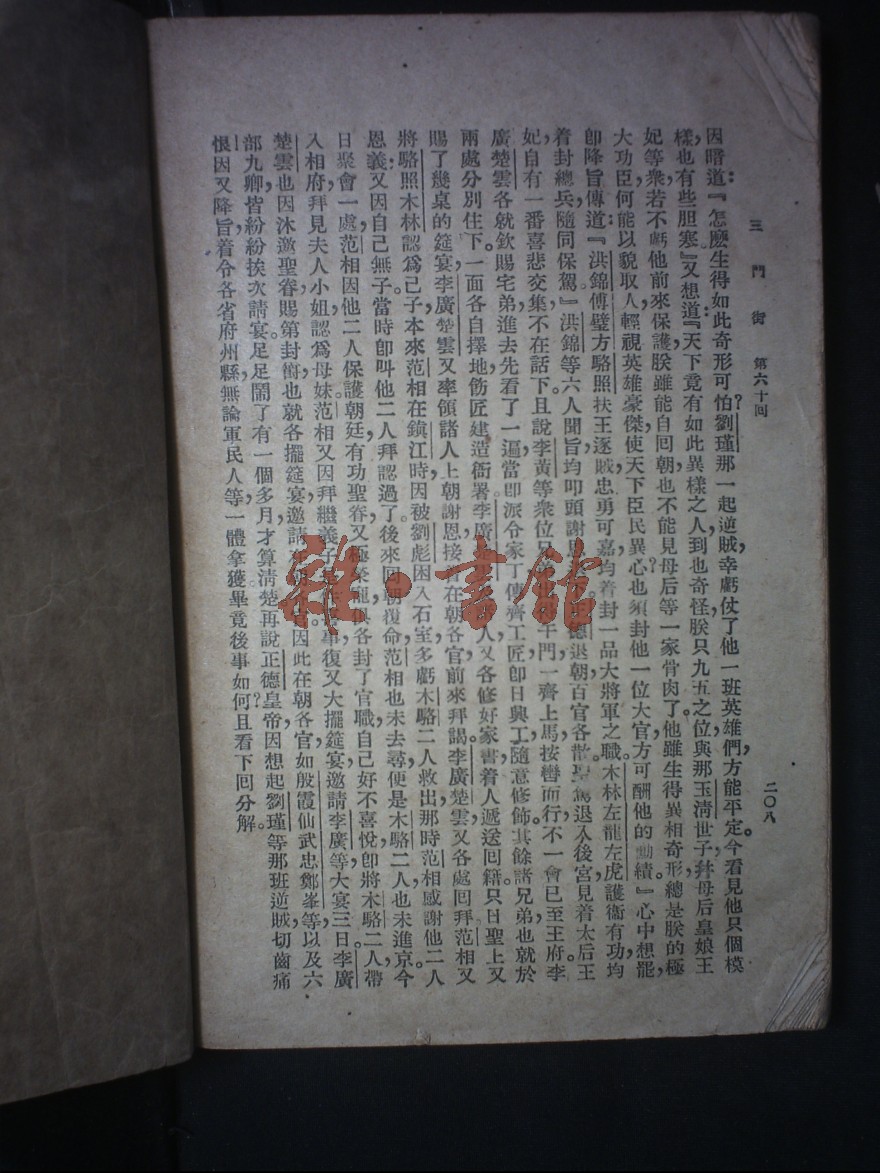 三門街　第六十回　二〇八
因暗道：『怎麽生得如此奇形可怕？劉瑾那一起逆賊，幸虧仗了他一班英雄們，方能平定。今看見他只個模
樣，也有些胆寒。』又想道：『天下竟有如此異樣之人，到也奇怪。朕只九五之位，與那玉淸世子，幷母后皇娘王
妃等衆，若不虧他前來保護，朕雖能自回朝，也不能見母后等一家骨肉了。他雖生得異相奇形，總是朕的極
大功臣，何能以貌取人，輕視英雄豪傑，使天下臣民異心？也須封他一位大官，方可酬他的勳績。』心中想罷，
卽降旨傳道：『洪錦傅璧方駱照扶王逐賊，忠勇可嘉，均着封一品大將軍之職。木林左龍左虎護衞有功，均
着封總兵，隨同保駕。』洪錦等六人聞旨，均叩頭謝恩。正德退朝，百官各散。聖駕退入後宮，見着太后王
妃，自有一番喜悲交集，不在話下。且說李黃等衆位兄弟午門一齊上馬，按轡而行，不一會已至王府，李
廣楚雲各就欽賜宅弟進去，先看了一遍，當卽派令家丁傳齊工匠，卽日興工，隨意修飾。其餘諸兄弟也就於
兩處分別住下。一面各自擇地飭匠建造衙署。李廣楚雲人又各修好家書，着人遞送回籍。只日聖上又
賜了幾桌的筵宴，李廣楚雲又率領諸人上朝謝恩。接着在朝各官前來拜謁，李廣楚雲又各處回拜。范相又
將駱照木林認爲己子。本來范相在鎭江時，因被劉彪困入石室，多虧木駱二人救出，那時范相感謝他二人
恩義；又因自己無子，當時卽叫他二人拜認過了。後來回朝復命，范相也未去尋，便是木駱二人，也未進京。今
日聚會一處，范相因他二人保護朝廷有功，聖眷又極榮寵，俱各封了官職，自己好不喜悅，卽將木駱二人帶
入相府，拜見夫人小姐，認爲母妹。范相又因拜繼義子是件喜事，復又大擺筵宴，邀請李廣等大宴三日。李廣
楚雲也因沐邀聖眷，賜第封銜，也就各擺筵宴，邀請在朝各官。因此在朝各官如殷霞仙武忠鄭峯等，以及六
部九卿，皆紛紛挨次請宴，足足鬧了有一個多月才算淸楚。再說正德皇帝，因想起劉瑾等那班逆賊，切齒痛
恨，因又降旨，着令各省府州縣，無論軍民人等，一體拿獲。畢竟後事如何？且看下回分解。
雜·書館